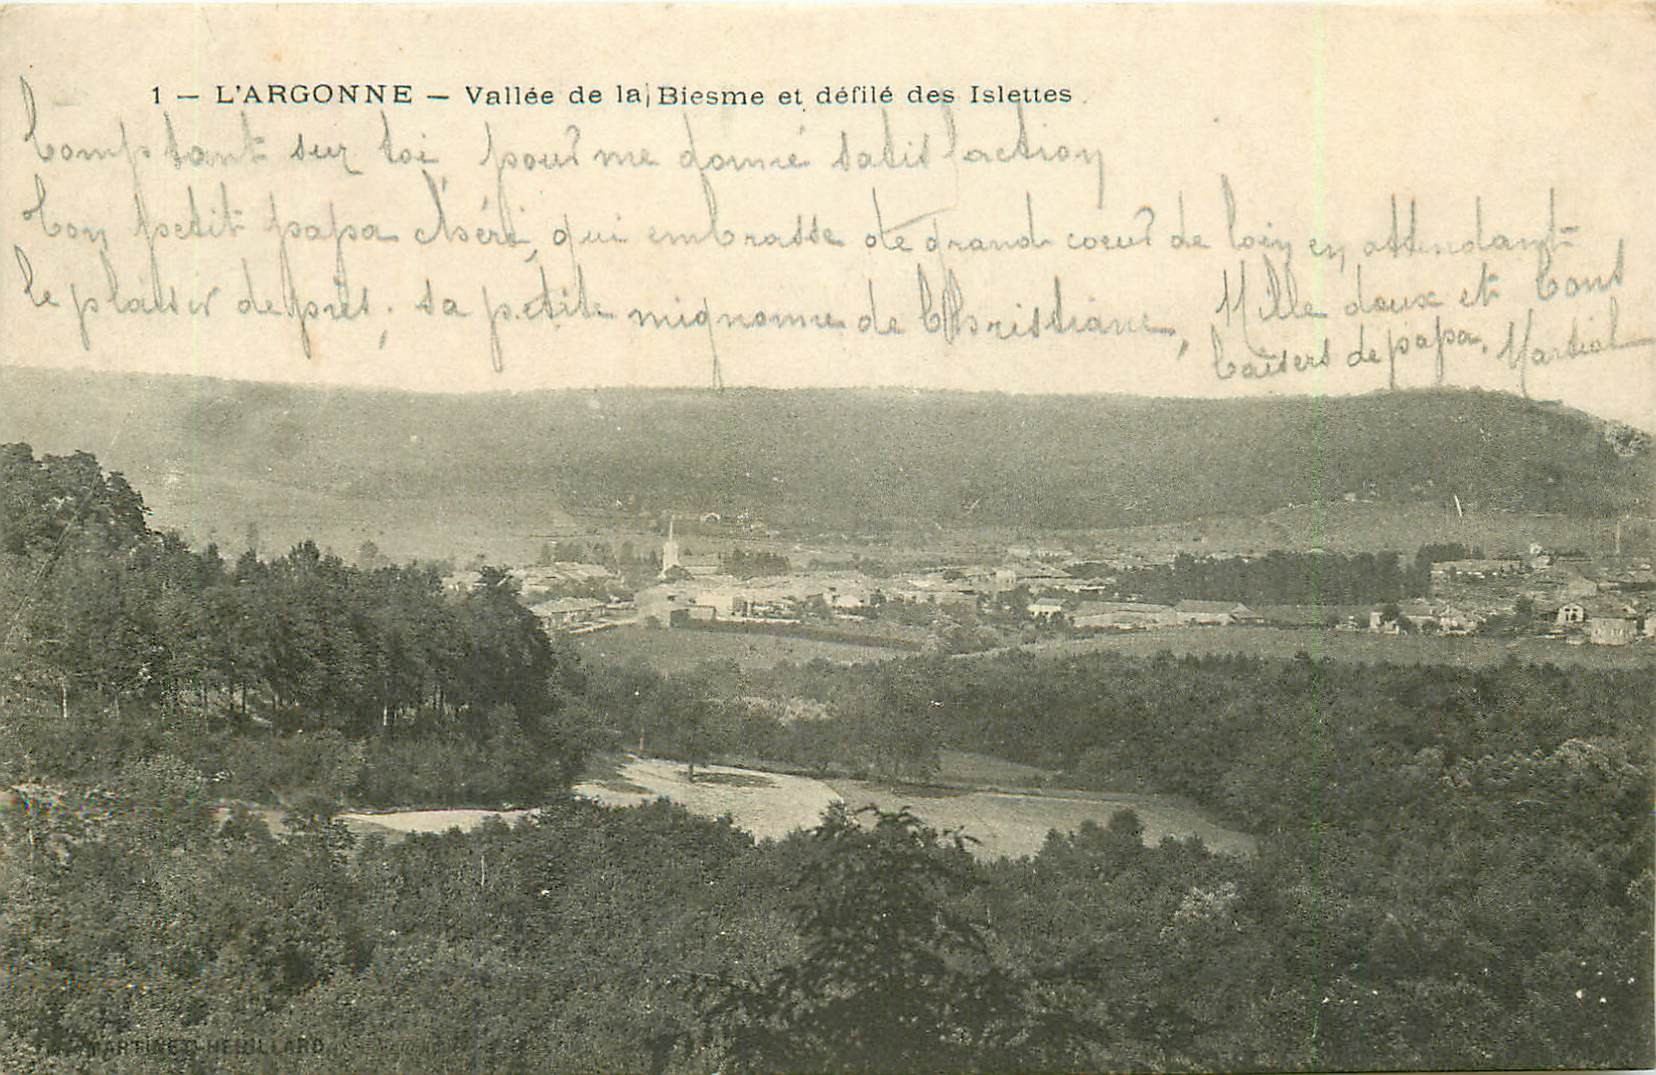 1 — L'ARGONNE — Vallée de la Biesme et défilé des Islettes
Comptant sur toi pour me donné satisfaction
Ton petit papa chéri, qui embrasse de grand coeur de loin en attendant
le plaisir de près. sa petite mignonne de Christiane,
Mille doux et bons
baisers de papa. Martial
MARTINET-HEUILLARD